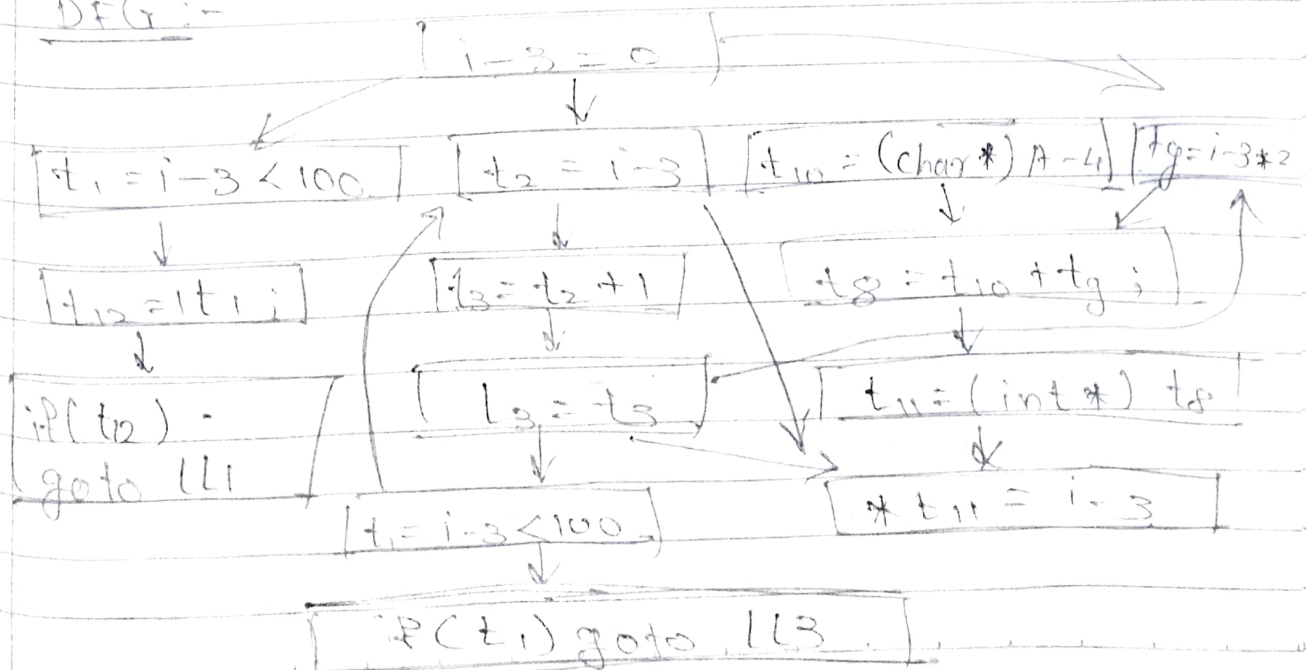 DFG :-
i-3 = 0
t1 = i-3 < 100
t2 = i-3
t10 = (char*) A-4
t9 = i-3*2
t12 = !t1;
t3 = t2 + 1
t8 = t10 + t9;
if(t12)
goto LL1
i_3 = t3
t11 = (int*) t8
*t11 = i-3
t1 = i-3 < 100
if(t1) goto LL3